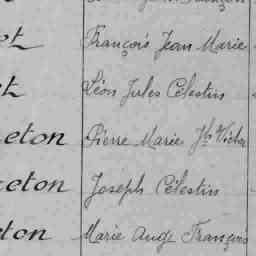 ot François Jean Marie
t Léon Jules Célestin
eton Pierre Marie Jh Victor
eton Joseph Célestin
ton Marie Ange François